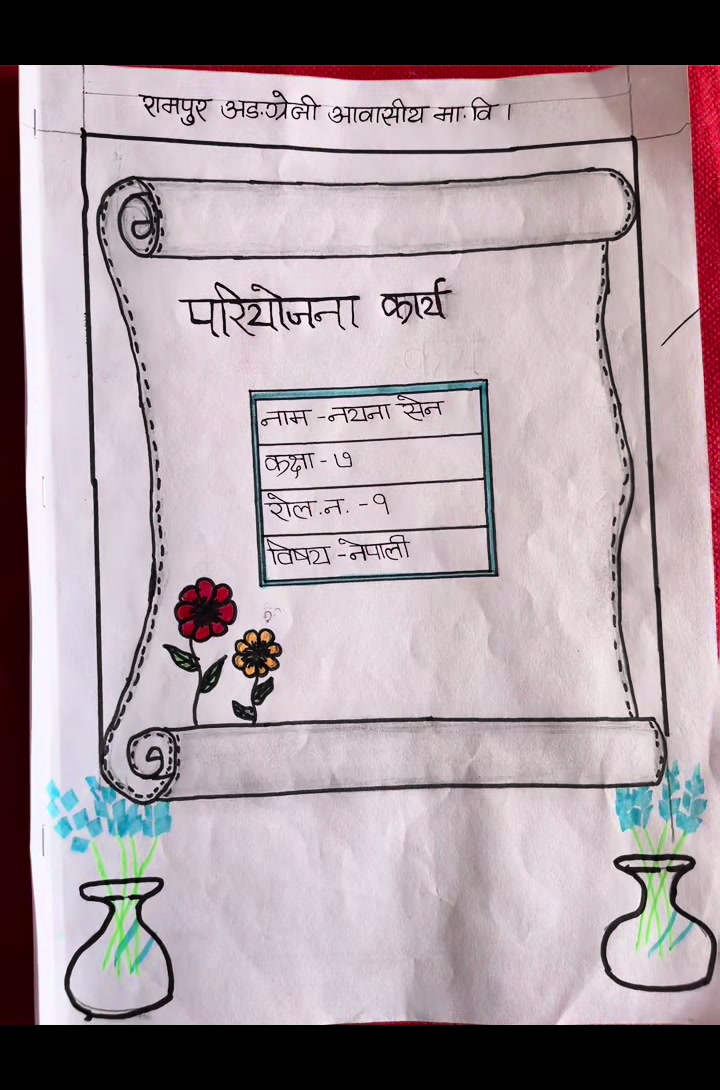 रामपुर अङ.ग्रेजी आवासीय मा.वि।
परियोजना कार्य
नाम -नयना सेन
कक्षा - ७
रोल.न. - १
विषय -नेपाली